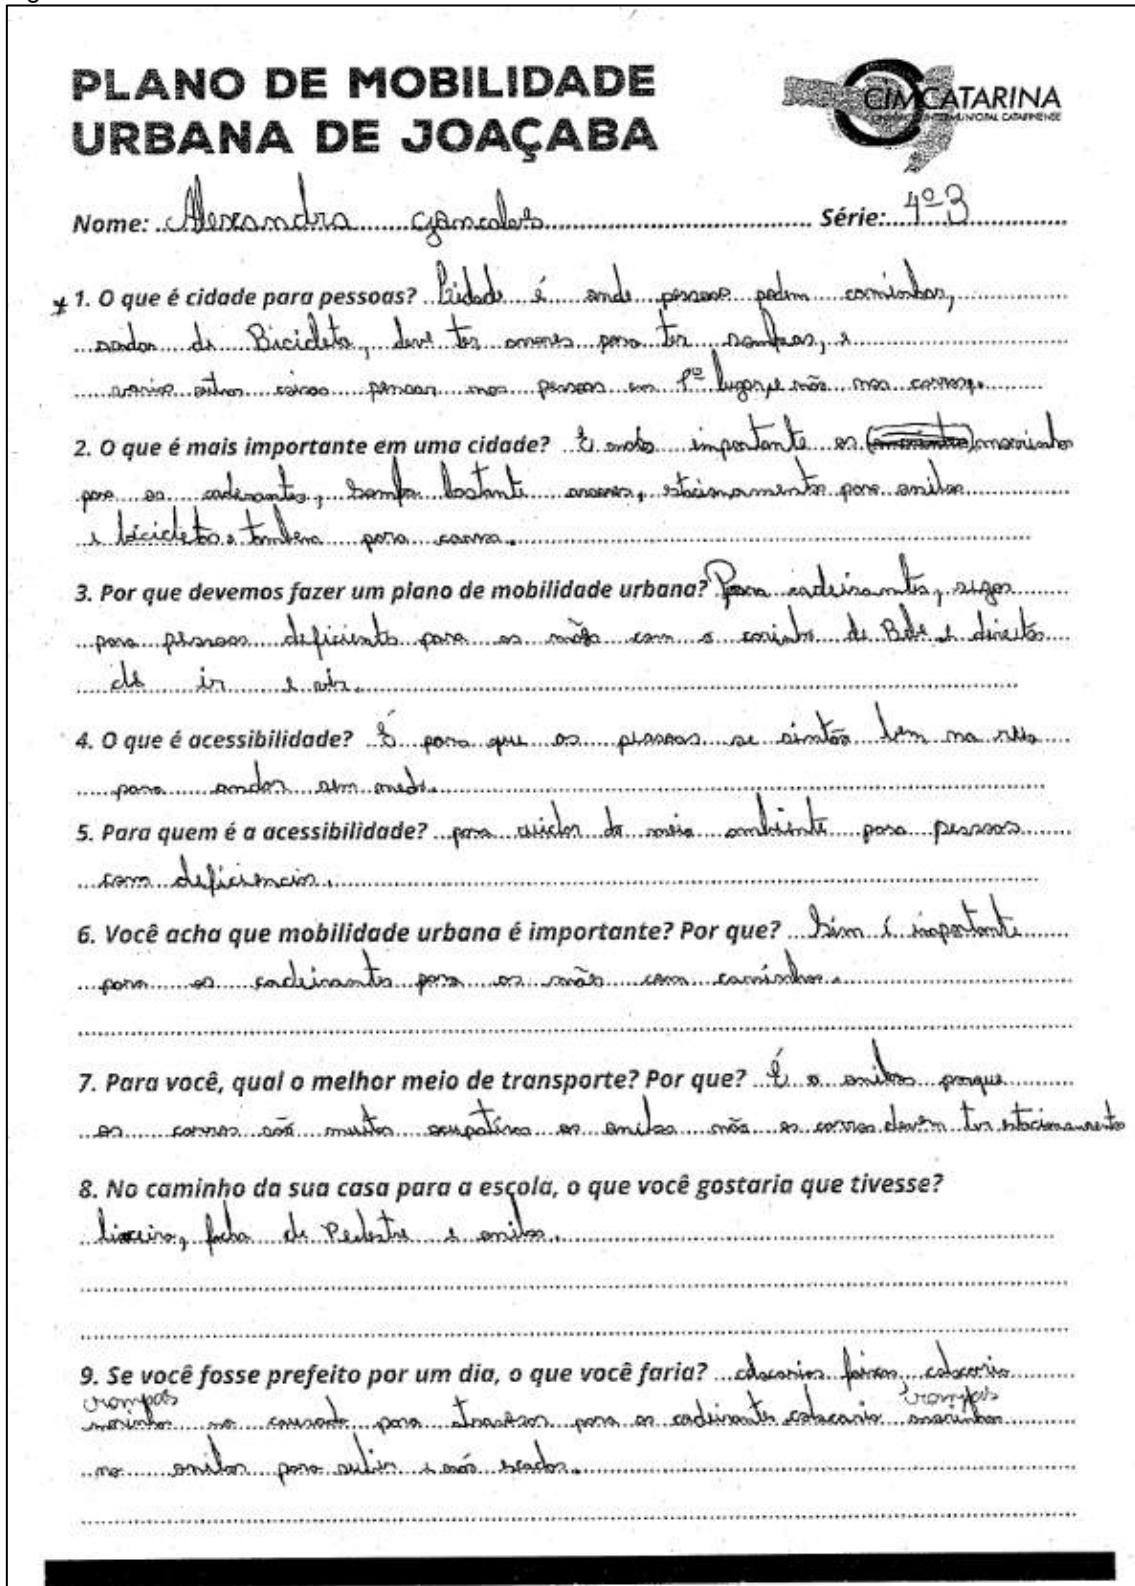 PLANO DE MOBILIDADE
URBANA DE JOAÇABA
CIMCATARINA
CONSÓRCIO INTERMUNICIPAL CATARINENSE
Nome: Alexandra Série: 4º 3
* 1. O que é cidade para pessoas? Cidade é onde pessoas podem caminhar,
andar de Bicicleta, deve ter arvores para ter sombras, e
varias outras coisas pensar nas pessoas em 1º lugar, e não nos carros.
2. O que é mais importante em uma cidade? É importante os
para os cadeirantes, bastante arvores, estacionamento para onibos
e bicicletas e tambem para carros.
3. Por que devemos fazer um plano de mobilidade urbana? Para cadeirantes,
para pessoas deficients para as com o de Bebe e direitos
de ir e vir.
4. O que é acessibilidade? É para que as pessoas se sintão bem na
para andar sem medo.
5. Para quem é a acessibilidade? para cuidar do meio ambiente para pessoas
com deficiencia.
6. Você acha que mobilidade urbana é importante? Por que? Sim é importante
para os cadeirantes para as mães com carrinhos.
7. Para você, qual o melhor meio de transporte? Por que? É o onibos porque
os carros são muitos ocupativos os onibos não os carros devem ter estacionamento
8. No caminho da sua casa para a escola, o que você gostaria que tivesse?
lixeira, de Pedestre e onibos.
9. Se você fosse prefeito por um dia, o que você faria? faixas colocaria
rrompas rrompas
na para para os cadeirantes colocaria
no onibos para subir e não